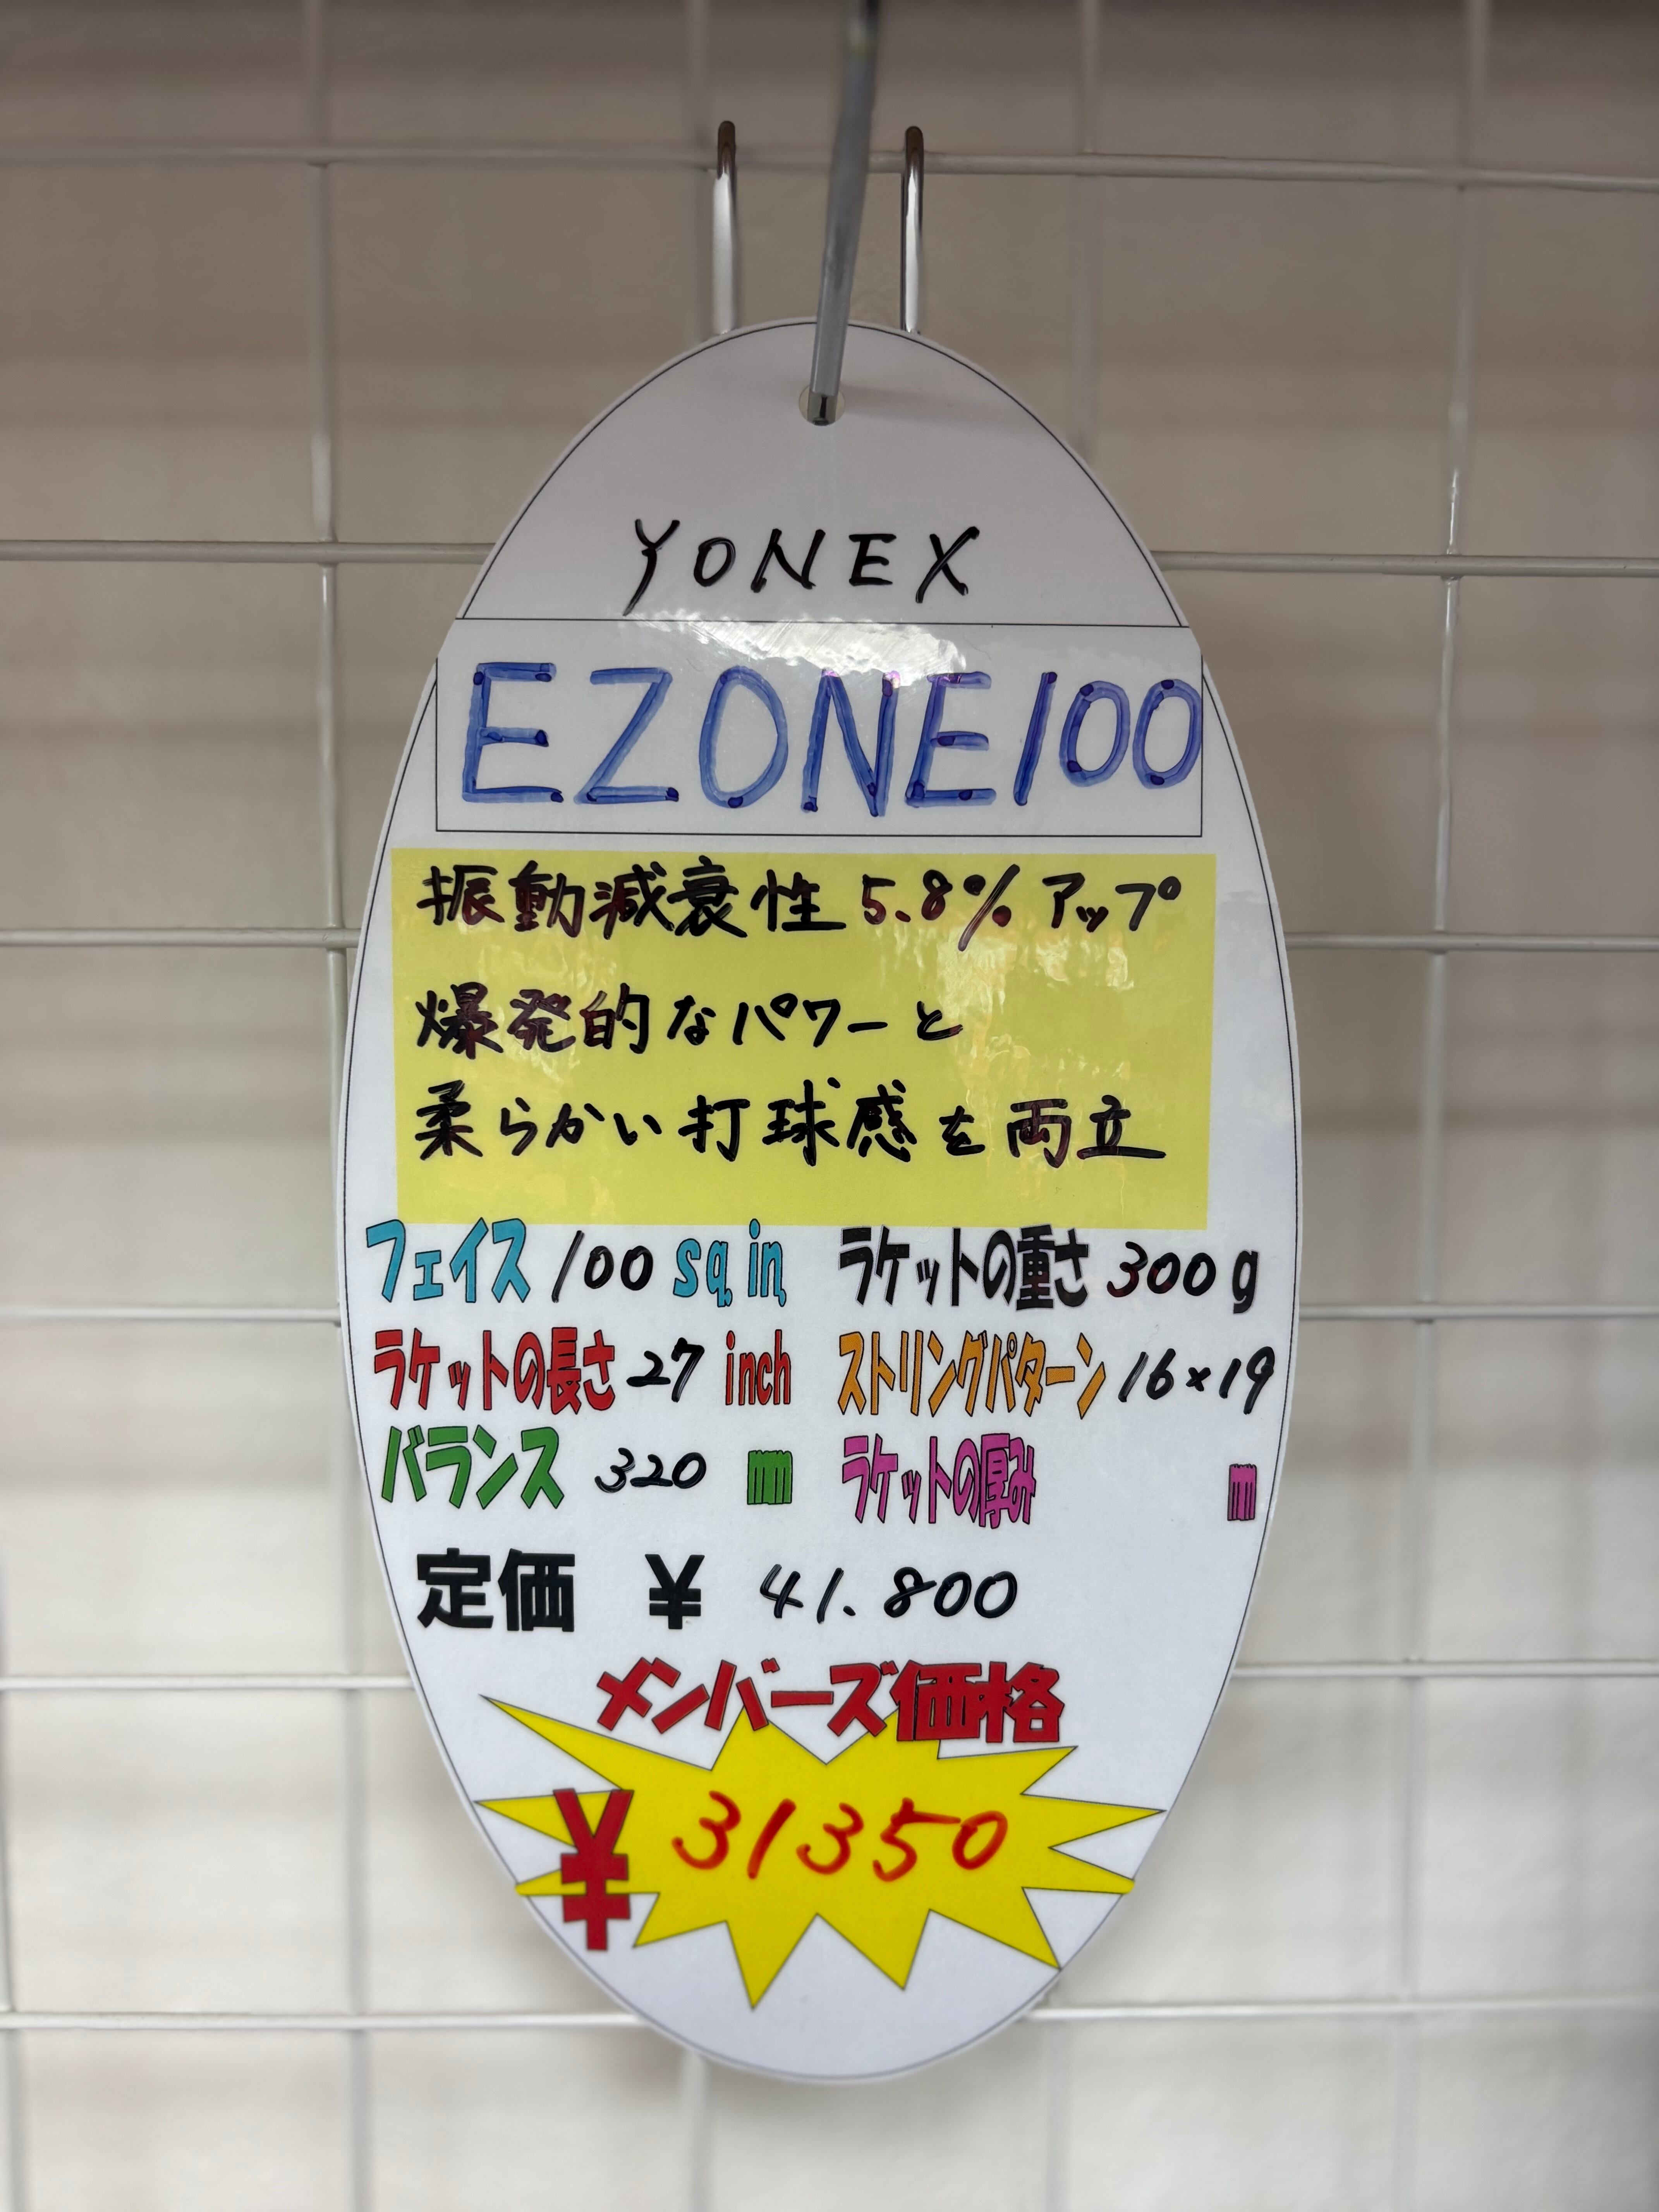 YONEX
EZONE100
振動減衰性 5.8% アップ
爆発的なパワーと
柔らかい打球感を両立
フェイス 100 sq.in. ラケットの重さ 300 g
ラケットの長さ 27 inch ストリングパターン 16×19
バランス 320 mm ラケットの厚み mm
定価 ¥ 41.800
メンバーズ価格
¥ 31350